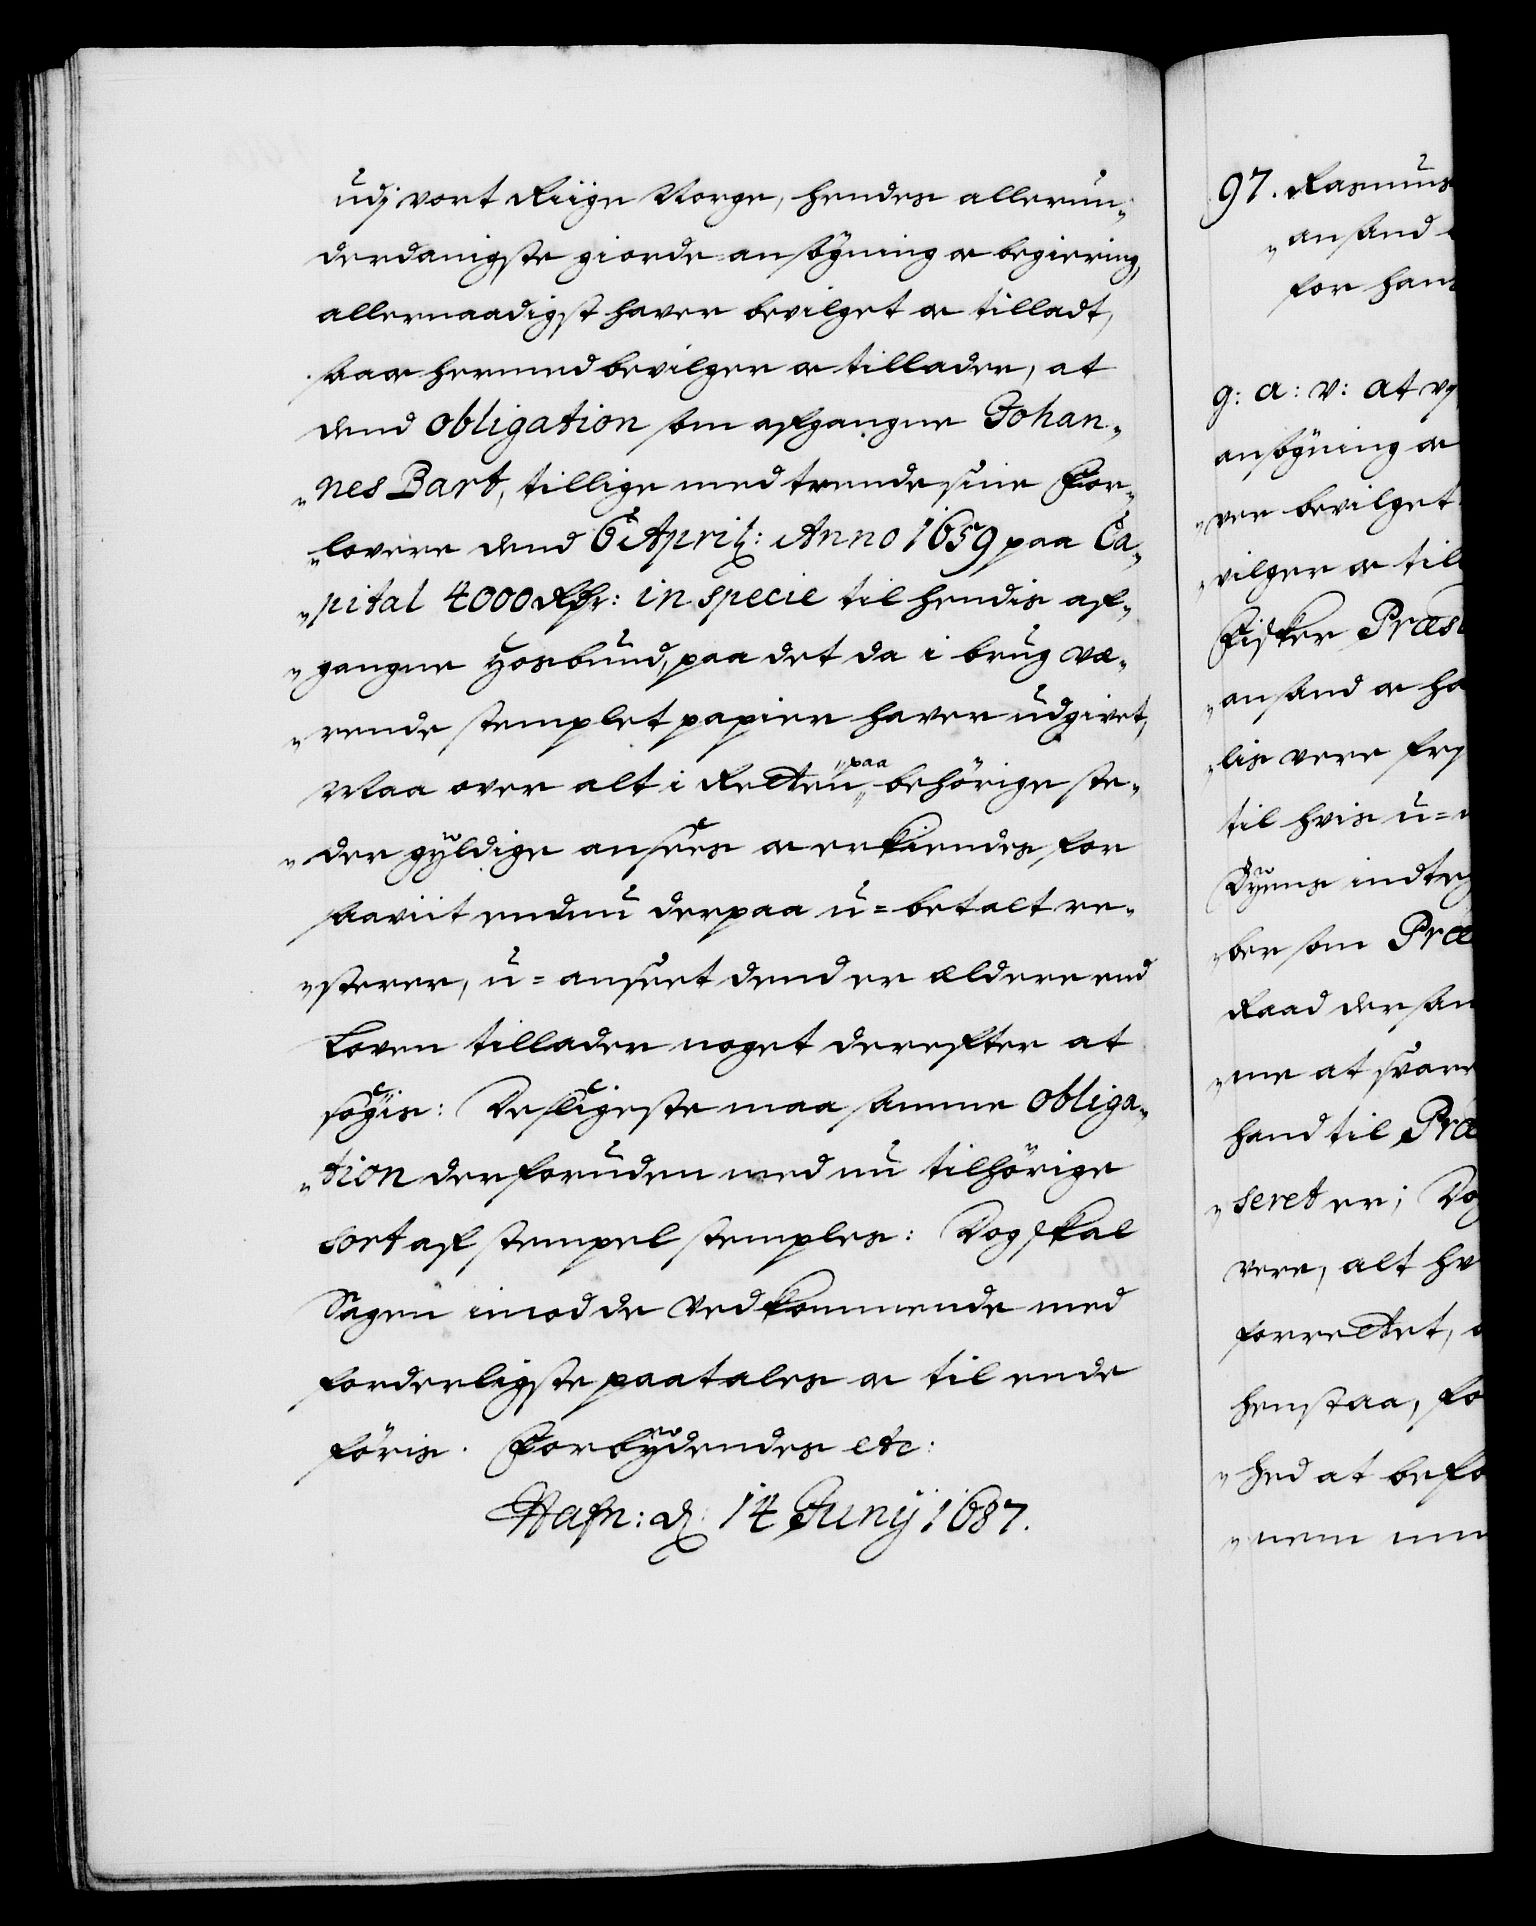 udj vort Riige Norge, hendes allerun-
derdanigste giorde ansøgning og begiering,
allernaadigst haver bevilget og tilladt,
saa og hermed bevilger og tillader, at
dend obligation som afgangne Johan-
nes Bart, tillige med trende sine For-
lovere dend 6 April: Anno 1659 paa Ca-
pital 4000 Rdr: in specie til hendis af-
gangne Hosbund, paa det da i brug væ-
rende stemplet papier haver udgivet,
Maa over alt i Retten, paa behörige ste-
der gyldige ansees og erkiendes, for
saaviit endnu derpaa u=betalt re-
sterer, u=anseet dend er ældere end
Loven tillader noget derefter at
søgis: Desligeste maa samme obliga-
tion derforuden med nu tilhörige
sort af stempel stemples: Dog skal
Sagen imod de Vedkommende med
forderligste paatales og til ende
föris. Forbydendes etc:
Hafn: d: 14 Junij 1687.
97. Rasmus
ansand
for han
g: a: v: at vj
ansøgning og
ver bevilget
vilger og till
Fisker Præs
ansand og ha
lis vere fry
til hvis u=
Dyens indteg
ber som Præ
Raad dersam
me at svare
hand til Præ
seret er; Dog
vere, alt hv
forrettet,
henstaa, fo
hed at befo
nem